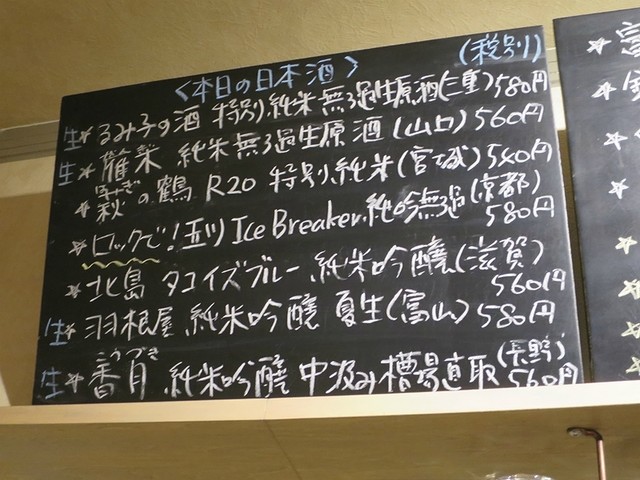 <本日の日本酒> (税別)
生★るみ子の酒 特別純米無ろ過生原酒(三重)580円
生★雁木 純米無ろ過生原酒(山口)560円
★萩の鶴 R20 特別純米(宮城)540円
★ロックで!玉川 Ice Breaker 純吟無ろ過(京都)580円
★北島 タコイズブルー 純米吟醸(滋賀)560円
生★羽根屋 純米吟醸 夏生(富山)580円
生★香月 純米吟醸 中汲み槽場直取(長野)560円
こうづき